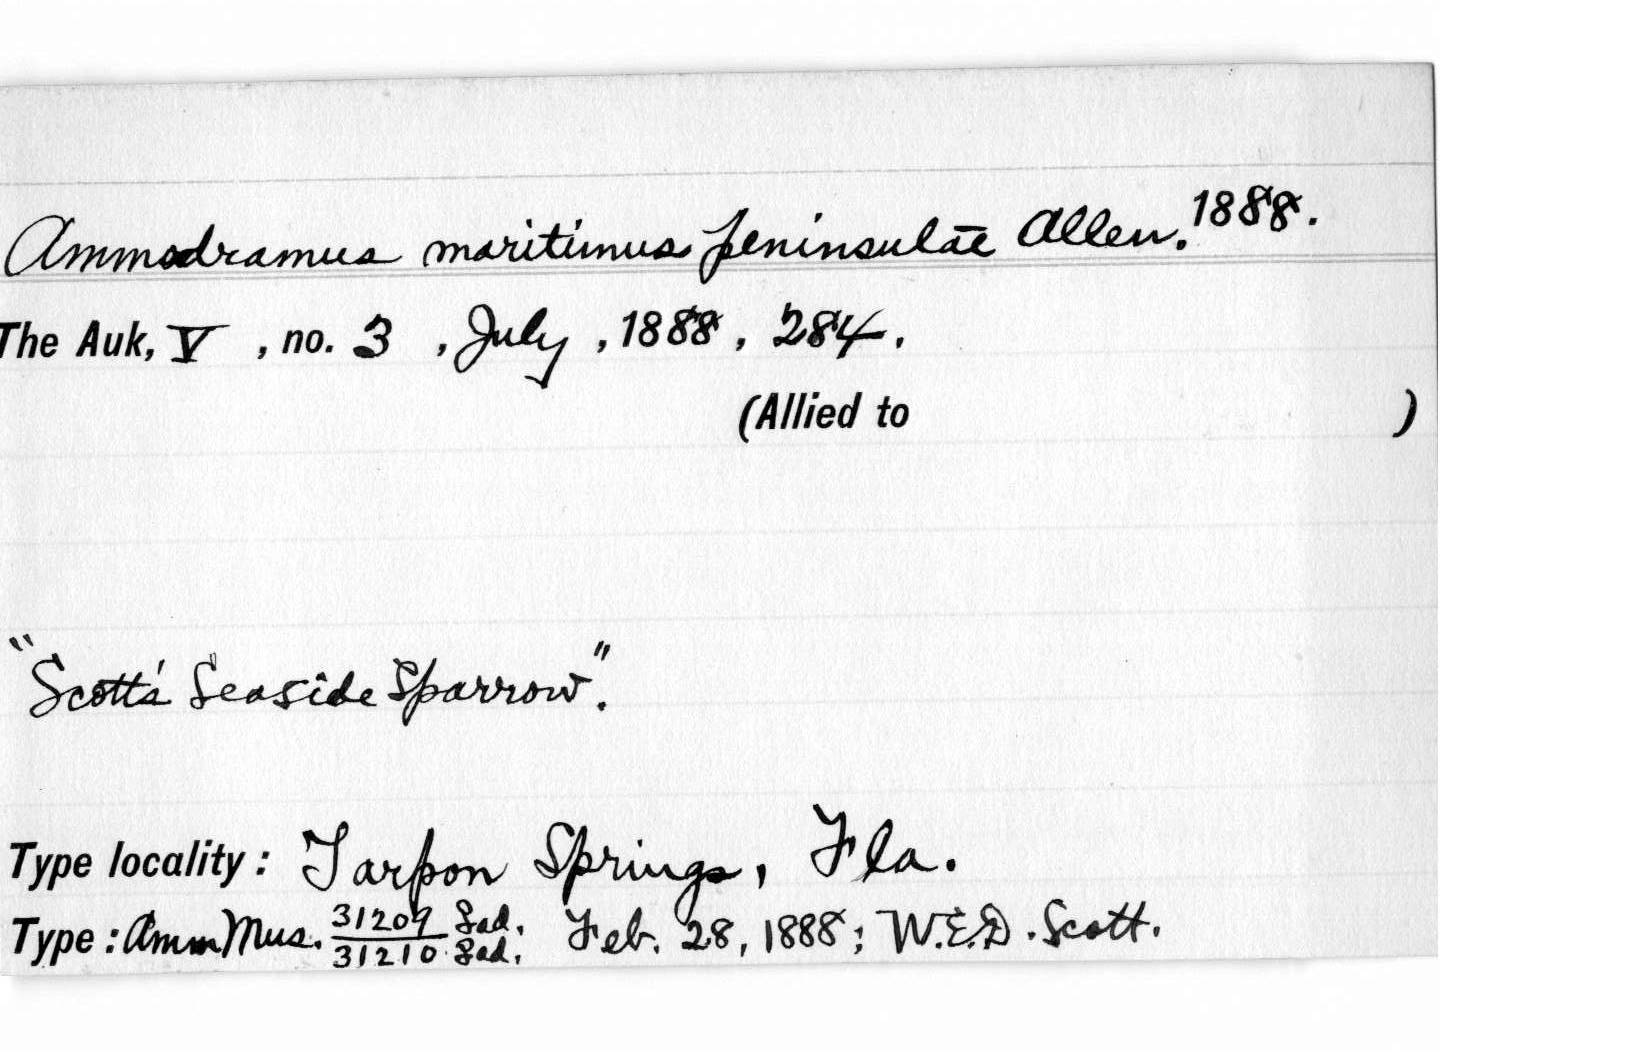 Ammodramus maritimus peninsulae Allen. 1888.
The Auk, V , no. 3 , July , 1888 , 284 .
(Allied to )
"Scott's Seaside Sparrow".
Type locality: Tarpon Springs, Fla.
Type: Amm Mus. 31209 ♂ad. Feb. 28, 1888; W.E.D. Scott.
31210 ♀ad.